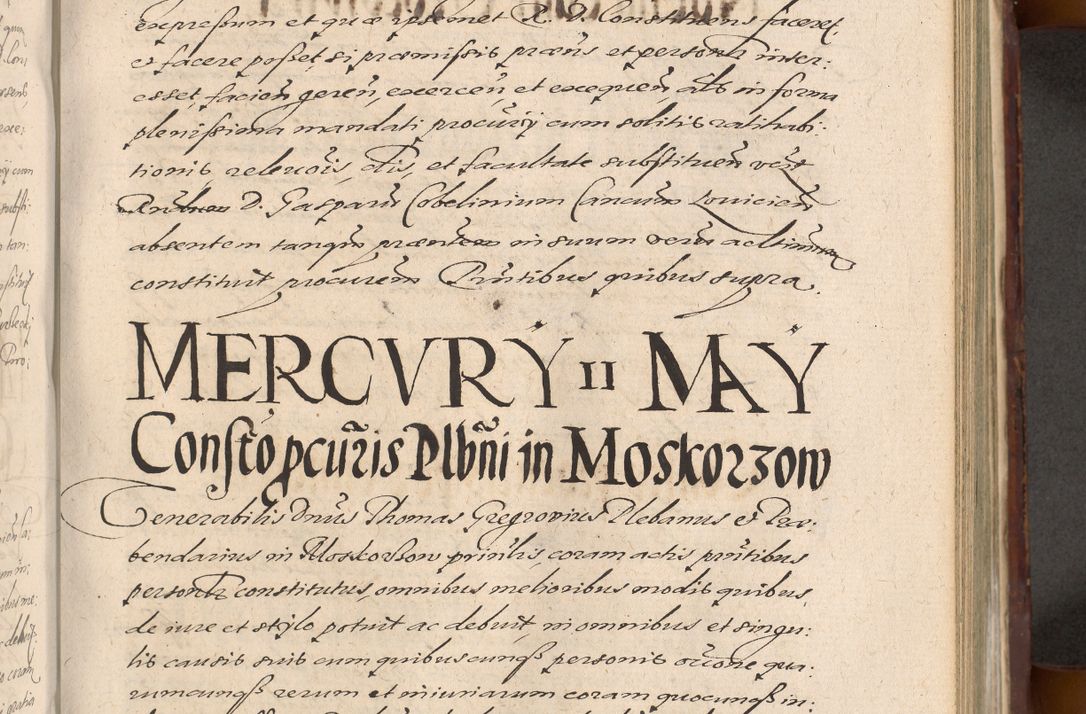 expressum et quæ ipsemet R. D. Constituens faceret,
et facere posset, si præmissis præns et persona inter:
esset, facien̄ geren̄, exercen̄, et exequen̄, al̄s in forma
plenissima mandati procūrij cum solitis ratihabi:
tionis, relevōis, et facultate substituen̄
D. Gasparū Cobelinium Cancūm Lovicien̄
absentem tanqm̄ præntem in suum verū ac ltimūm
constituit procurem Prn̄tibus quibus supra.
MERCVRŸ II MAŸ
Consto pcūris Plbn̄i in Moskorzow
Generabilis Dnūs Thomas Gregrovius Plebanus et Præ:
bendarius in Moskorzow prin̄lis, coram actis prn̄tibus
personlr constitutus, omnibus melioribus modis quibus
de iure et stylo potuit ac debuit, in omnibus et singu:
lis causis suis cum quibuscunqȝ personis occōne qua:
rumcunqȝ rerum et iniuriarum coram quocunqȝ in: